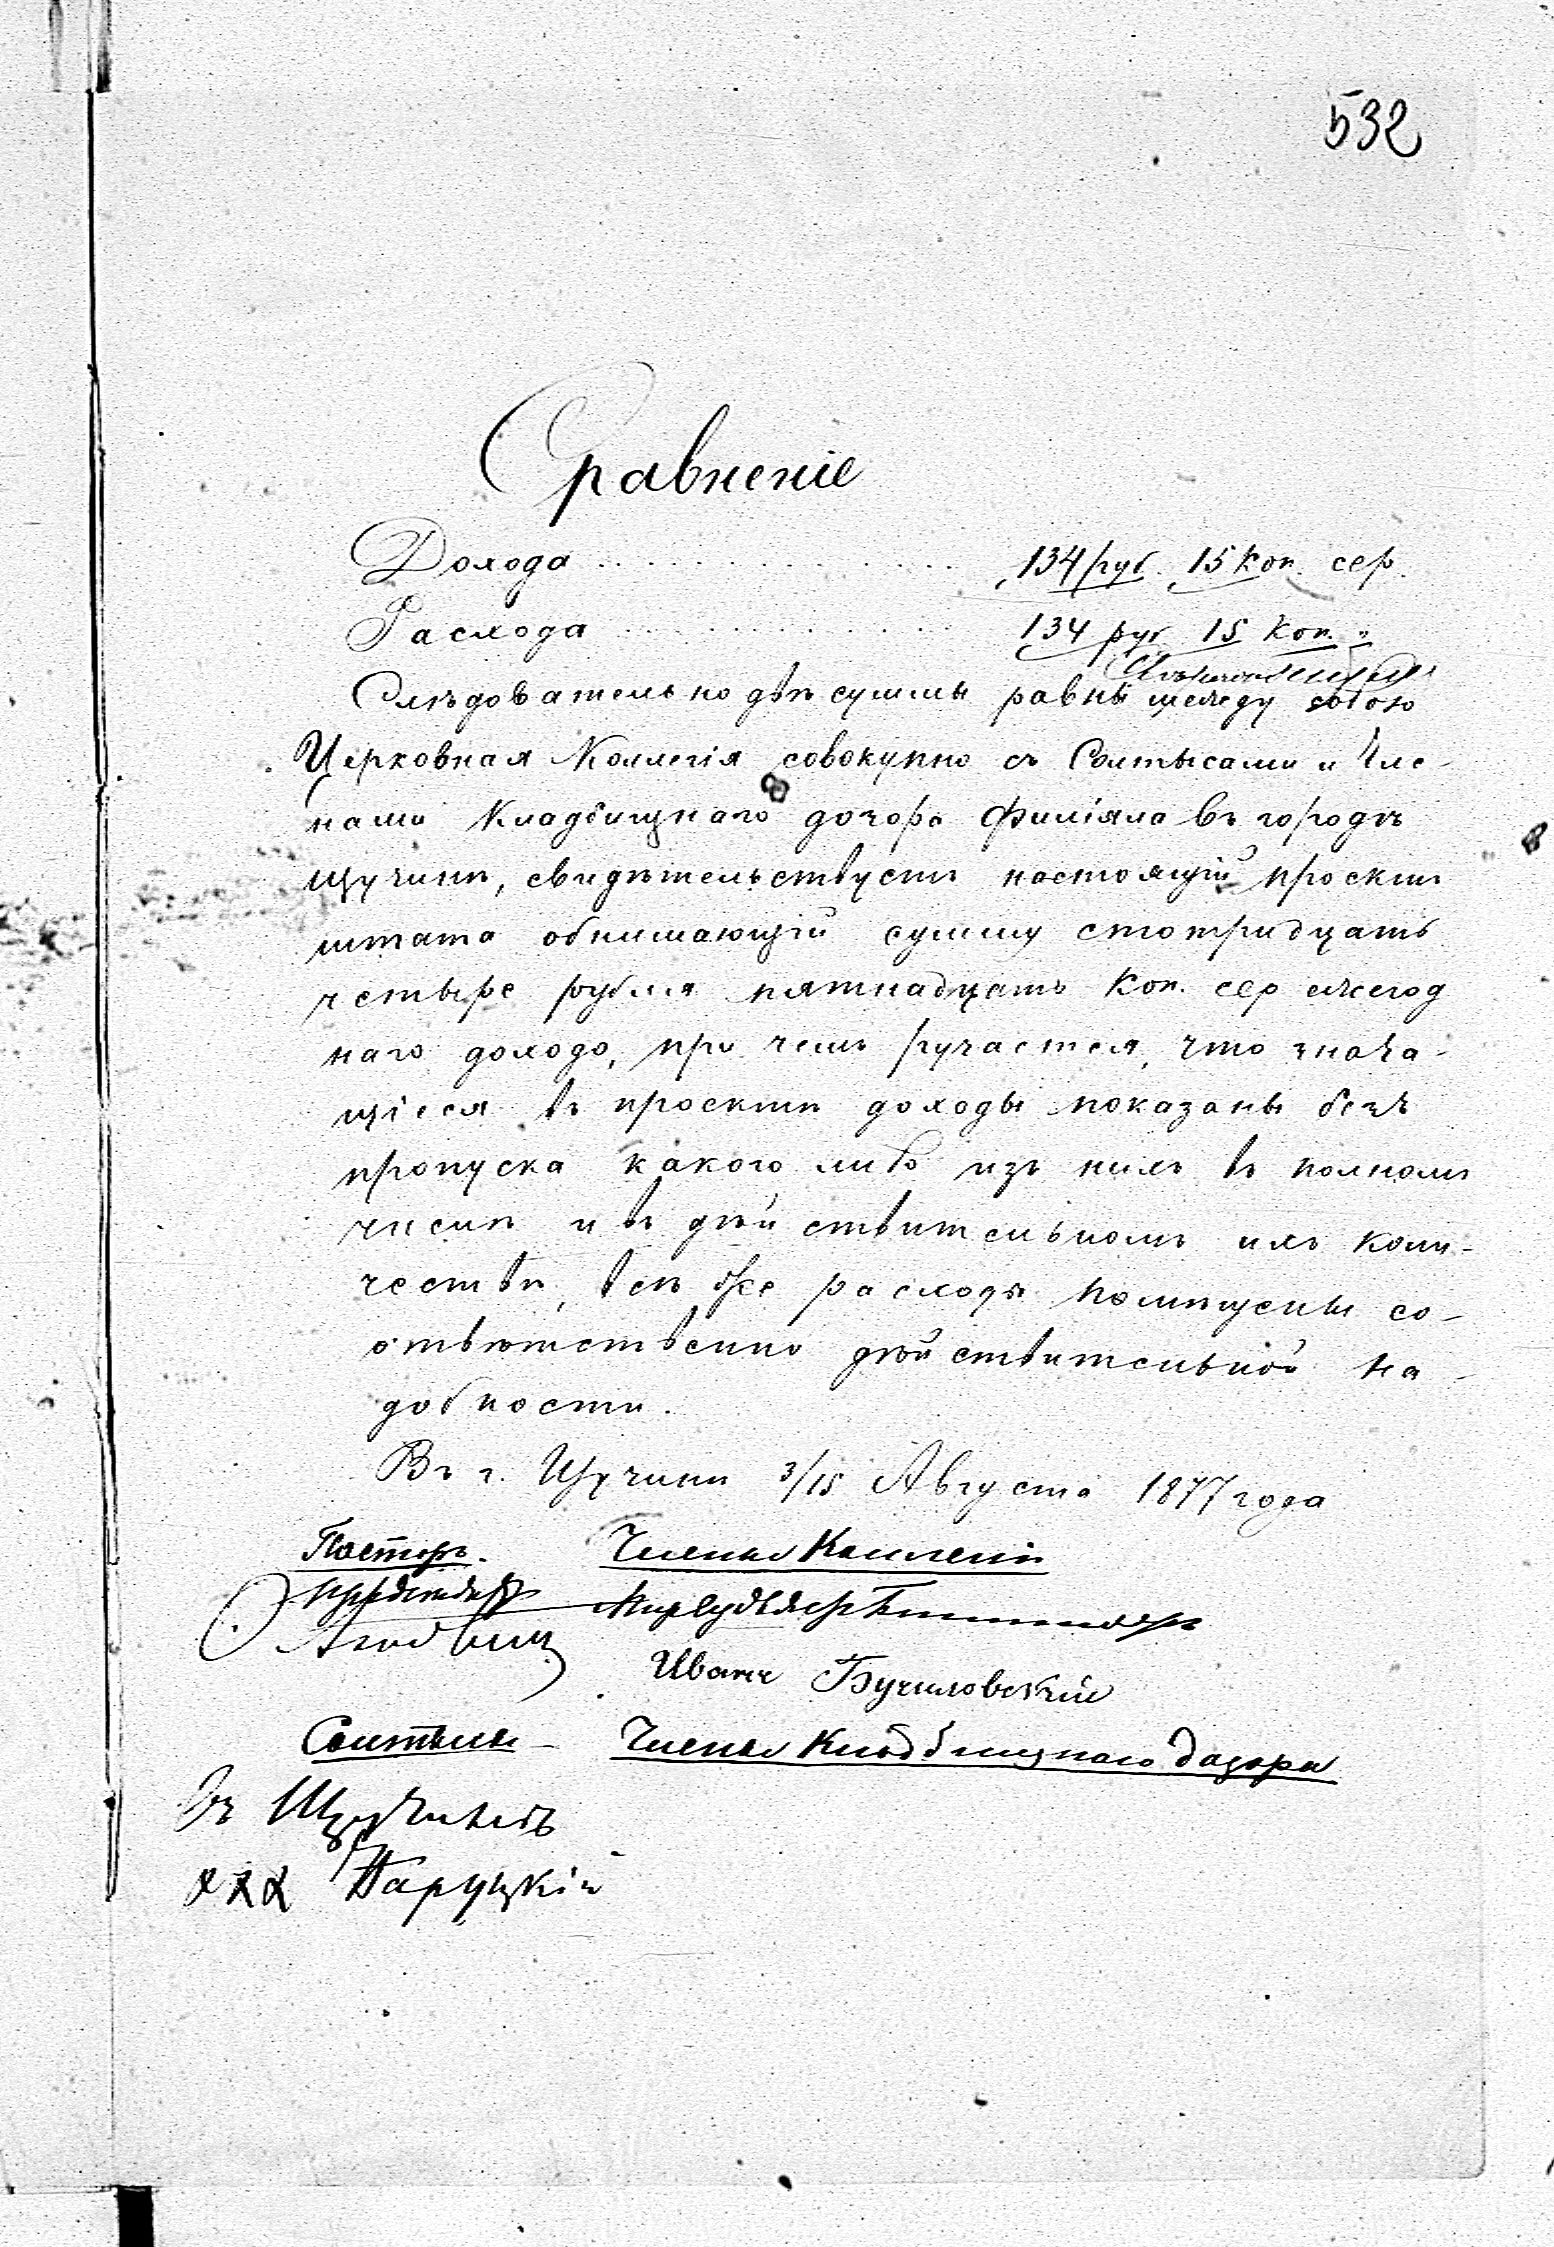 532
Сравненіе
Дохода . . . . . . . . . . . . 134 руб. 15 Коп. сер.
Расхода . . . . . . . . . . . . 134 руб 15 Коп. "
Слѣдовательно двѣ суммы равны между собою
Церковная Коллегія совокупно съ Солтысами и Чле-
нами Кладбищнаго дозора Филіяла въ городѣ
Щучинѣ, свидѣтельствуетъ настоящій проектъ
штата обнимающій сумму стотридцать
четыре рубля пятнадцать Коп. сер ежегод
наго дохода, при чемъ ручается, что знача-
щіеся въ проектѣ доходы показаны безъ
пропуска какого либо изъ нихъ въ полномъ
числѣ и въ дѣйствительномъ ихъ коли-
чествѣ, всѣ же расходы помѣщены со-
отвѣтственно дѣйствительной на-
добности.
Въ г. Щучинѣ 3/15 Августа 1877 года
Пасторъ. Члены Коллегіи
Иванъ Бучиловскій
Солтысы - Члены Кладбищнаго дозора
въ Щучинѣ
ххх Паруцкій